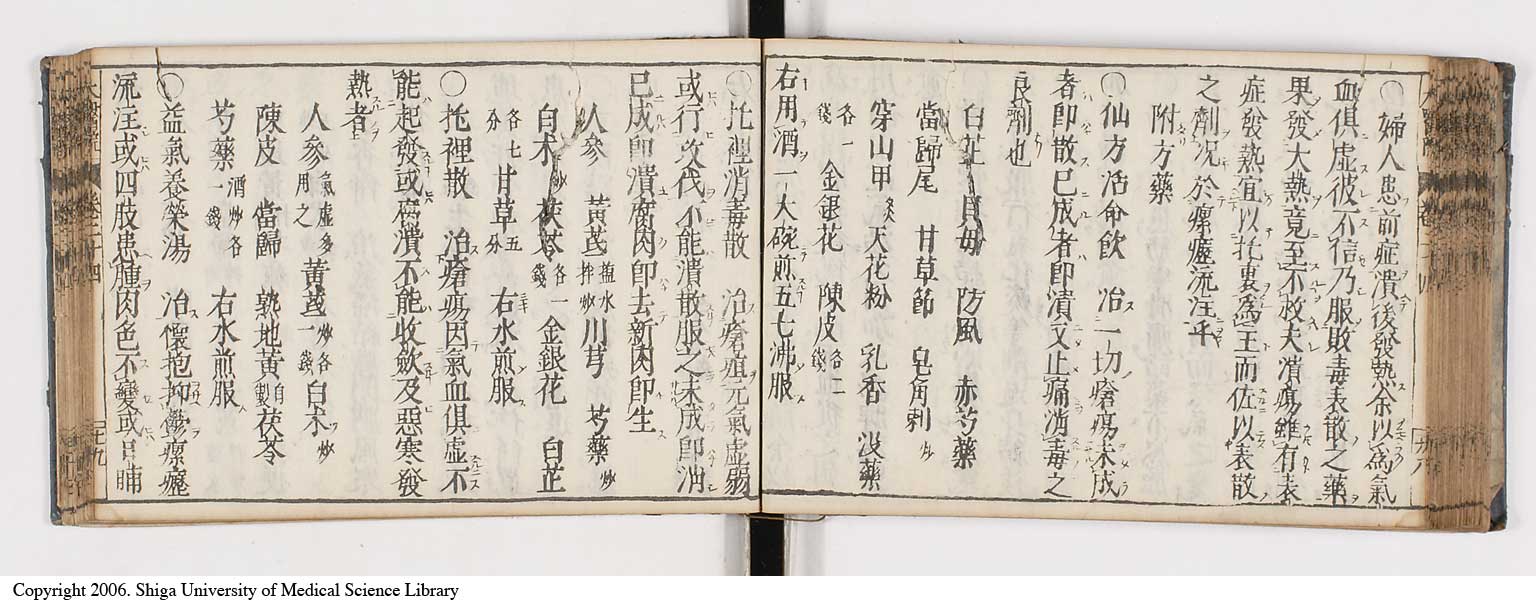 ○婦人患前症潰後發熱余以爲氣
血俱虛彼不信乃服敗毒表散之藥
果發大熱竟至不救夫潰瘍雖有表
症發熱宜以托裏爲主而佐以表散
之劑况於瘰癧流注乎
附方藥
○仙方活命飲 治一切瘡瘍未成
者即散已成者即潰又止痛消毒之
良劑也
白芷 貝母 防風 赤芍藥
當歸尾 甘草節 皂角刺炒
穿山甲炙 天花粉 乳香 没藥
各一錢 金銀花 陳皮各三錢
右用酒一大碗煎五七沸服
○托裡消毒散 治瘡疽元氣虛弱
或行攻伐不能潰散服之未成即消
已成即潰腐肉即去新肉即生
人參 黃芪塩水拌炒 川芎 芍藥炒
白术炒 茯苓各一錢 金銀花 白芷
各七分 甘草五分 右水煎服
○托裡散 治瘡瘍因氣血俱虛不
能起發或腐潰不能收歛及惡寒發
熱者
人參氣虛多用之 黃芪炒各一錢 白术炒
陳皮 當歸 熟地黃自製 茯苓
芍藥酒炒各一錢 右水煎服
○益氣養榮湯 治懷抱抑鬱瘰癧
流注或四肢患腫肉色不變或日晡